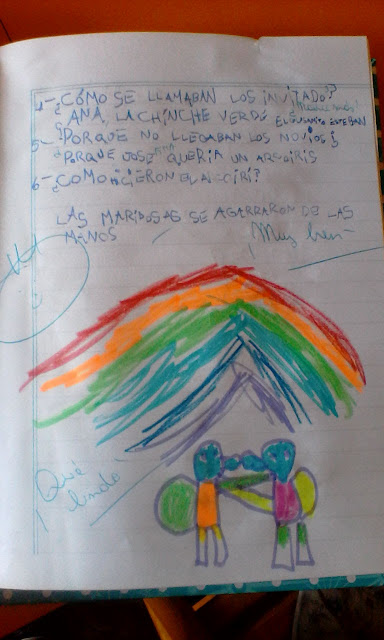 4-¿CÓMO SE LLAMABAN LOS INVITADO?
ANA, LA CHINCHE VERDE EL GUSANITO ESTEBAN
5-¿PORQUE NO LLEGABAN LOS NOVIOS?
PORQUE JOSEFINA QUERIA UN ARCOIRIS
6-¿COMO HICIERON EL ARCOIRI?
LAS MARIPOSAS SE AGARRARON DE LAS
MANOS
¡Muy bien!
¡Qué
lindo!